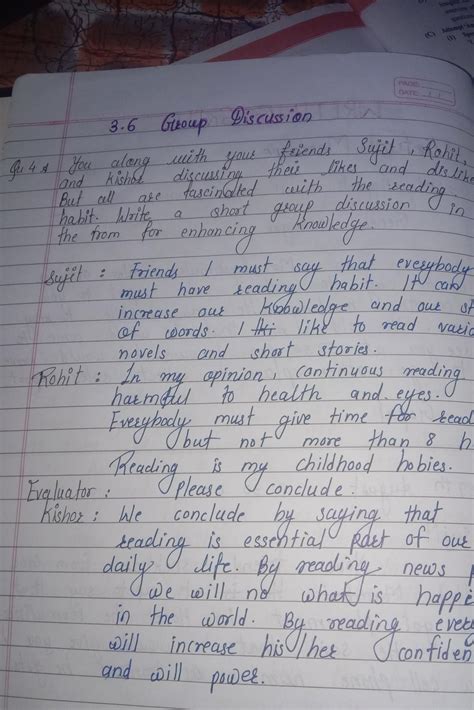 PAGE:
DATE:
3.6 Group Discussion
Qu 4 You along with your friends Sujit, Rohit,
and Kishor discussing their likes and dislike
But all are fascinated with the reading
habit. Write a short group discussion in
the from for enhancing knowledge.
Sujit : Friends I must say that everybody
must have reading habit. It can
increase our knowledge and our st
of words. I like to read vario
novels and short stories.
Rohit : In my opinion, continuous reading
harmful to health and eyes.
Everybody must give time for read
but not more than 8 h
Reading is my childhood hobies.
Evaluator : Please conclude.
Kishor : We conclude by saying that
reading is essential part of our
daily life. By reading news p
we will no what is happe
in the world. By reading every
will increase his/her confiden
and will power.